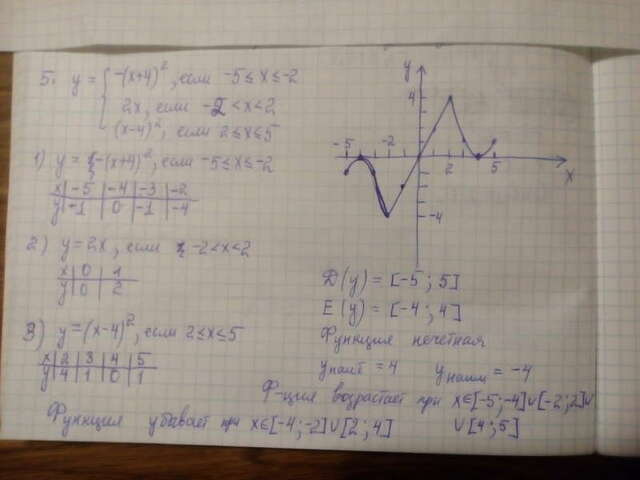 5. y = { -(x+4)², если -5 ≤ x ≤ -2
2x, если -2 < x < 2
(x-4)², если 2 ≤ x ≤ 5
1) y = -(x+4)², если -5 ≤ x ≤ -2
x | -5 | -4 | -3 | -2
y | -1 | 0 | -1 | -4
2) y = 2x, если -2 < x < 2
x | 0 | 1
y | 0 | 2
3) y = (x-4)², если 2 ≤ x ≤ 5
x | 2 | 3 | 4 | 5
y | 4 | 1 | 0 | 1
y
4
-5 -2 2 5
x
-4
D(y) = [-5; 5]
E(y) = [-4; 4]
Функция нечетная
yнаиб = 4 yнаим = -4
Ф-ция возрастает при x∈[-5;-4]∪[-2;2]∪
∪[4;5]
Функция убывает при x∈[-4;-2]∪[2;4]